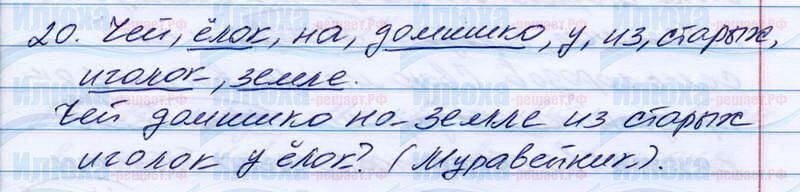 20. Чей, ёлок, на, домишко, у, из, старых,
иголок, земле.
Чей домишко на земле из старых
иголок у ёлок? (Муравейник).